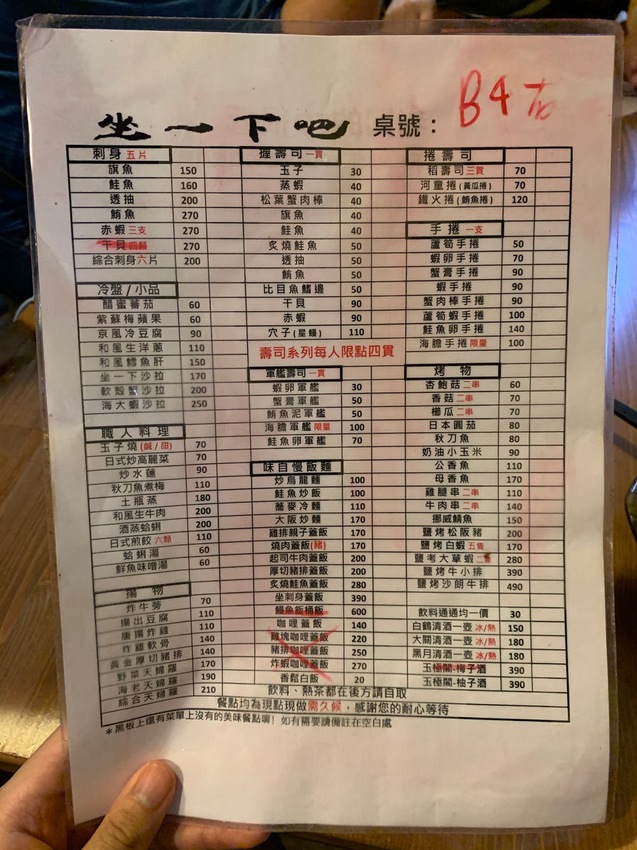 坐一下吧 桌號： B4
刺身 五片
旗魚 150
鮭魚 160
透抽 200
鮪魚 270
赤蝦 三支 270
干貝 四顆 270
綜合刺身 六片 200
冷盤/小品
醋蜜蕃茄 60
紫蘇梅蘋果 60
京風冷豆腐 90
和風生洋蔥 110
和風鱈魚肝 150
坐一下沙拉 170
軟殼蟹沙拉 200
海大蝦沙拉 250
職人料理
玉子燒(鹹/甜) 70
日式炒高麗菜 70
炒水蓮 90
秋刀魚煮梅 110
土瓶蒸 180
和風生牛肉 200
酒蒸蛤蜊 200
日式煎餃 六顆 110
蛤蜊湯 60
鮮魚味噌湯 60
揚物
炸牛蒡 70
揚出豆腐 110
唐揚炸雞 140
炸雞軟骨 140
黃金厚切豬排 140
野菜天婦羅 170
海老天婦羅 190
綜合天婦羅 210
握壽司 一貫
玉子 30
蒸蝦 40
松葉蟹肉棒 40
旗魚 40
鮭魚 40
炙燒鮭魚 50
透抽 50
鮪魚 50
比目魚鰭邊 50
干貝 90
赤蝦 90
穴子(星鰻) 110
壽司系列每人限點四貫
軍艦壽司 一貫
蝦卵軍艦 30
蟹膏軍艦 50
鮪魚泥軍艦 50
海膽軍艦 限量 100
鮭魚卵軍艦 70
味自慢飯麵
炒烏龍麵 100
鮭魚炒飯 100
蕎麥冷麵 110
大阪炒麵 170
雞排親子蓋飯 170
燒肉蓋飯(豬) 170
起司牛肉蓋飯 200
厚切豬排蓋飯 200
炙燒鮭魚蓋飯 280
坐刺身蓋飯 390
鰻魚飯桶飯 600
咖哩蓋飯 140
雞塊咖哩蓋飯 220
豬排咖哩蓋飯 250
炸蝦咖哩蓋飯 270
香鬆白飯 20
捲壽司
稻壽司 三貫 70
河童捲(黃瓜捲) 70
鐵火捲(鮪魚捲) 120
手捲 一支
蘆筍手捲 50
蝦卵手捲 70
蟹膏手捲 90
蝦手捲 90
蟹肉棒手捲 90
蘆筍蝦手捲 100
鮭魚卵手捲 140
海膽手捲 限量 100
烤物
杏鮑菇 二串 60
香菇 二串 70
櫛瓜 二串 70
日本圓茄 80
秋刀魚 80
奶油小玉米 90
公香魚 110
母香魚 170
雞腿串 二串 110
牛肉串 二串 140
挪威鯖魚 150
鹽烤松阪豬 200
鹽烤白蝦 五隻 170
鹽烤大草蝦 280
鹽烤牛小排 390
鹽烤沙朗牛排 490
飲料通通均一價 30
白鶴清酒一壺 冰/熱 150
大關清酒一壺 冰/熱 180
黑月清酒一壺 冰/熱 180
玉極閣-梅子酒 390
玉極閣-柚子酒 390
飲料、熱茶都在後方請自取
餐點均為現點現做需久候，感謝您的耐心等待
＊黑板上還有菜單上沒有的美味餐點唷！如有需要請備註在空白處